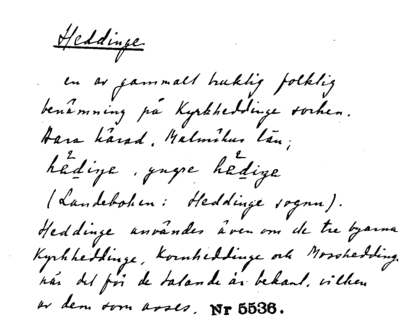 Heddinge
en av gammalt bruklig folklig
benämning på Kyrkheddinge socken.
Bara härad, Malmöhus län;
hädige, yngre hädige
(Landebohen: Heddinge sogn).
Heddinge användes även om de tre byarna
Kyrkheddinge, Kornheddinge och Mossheddinge
när det för de talande är bekant, vilken
av dem som avses. Nr 5536.